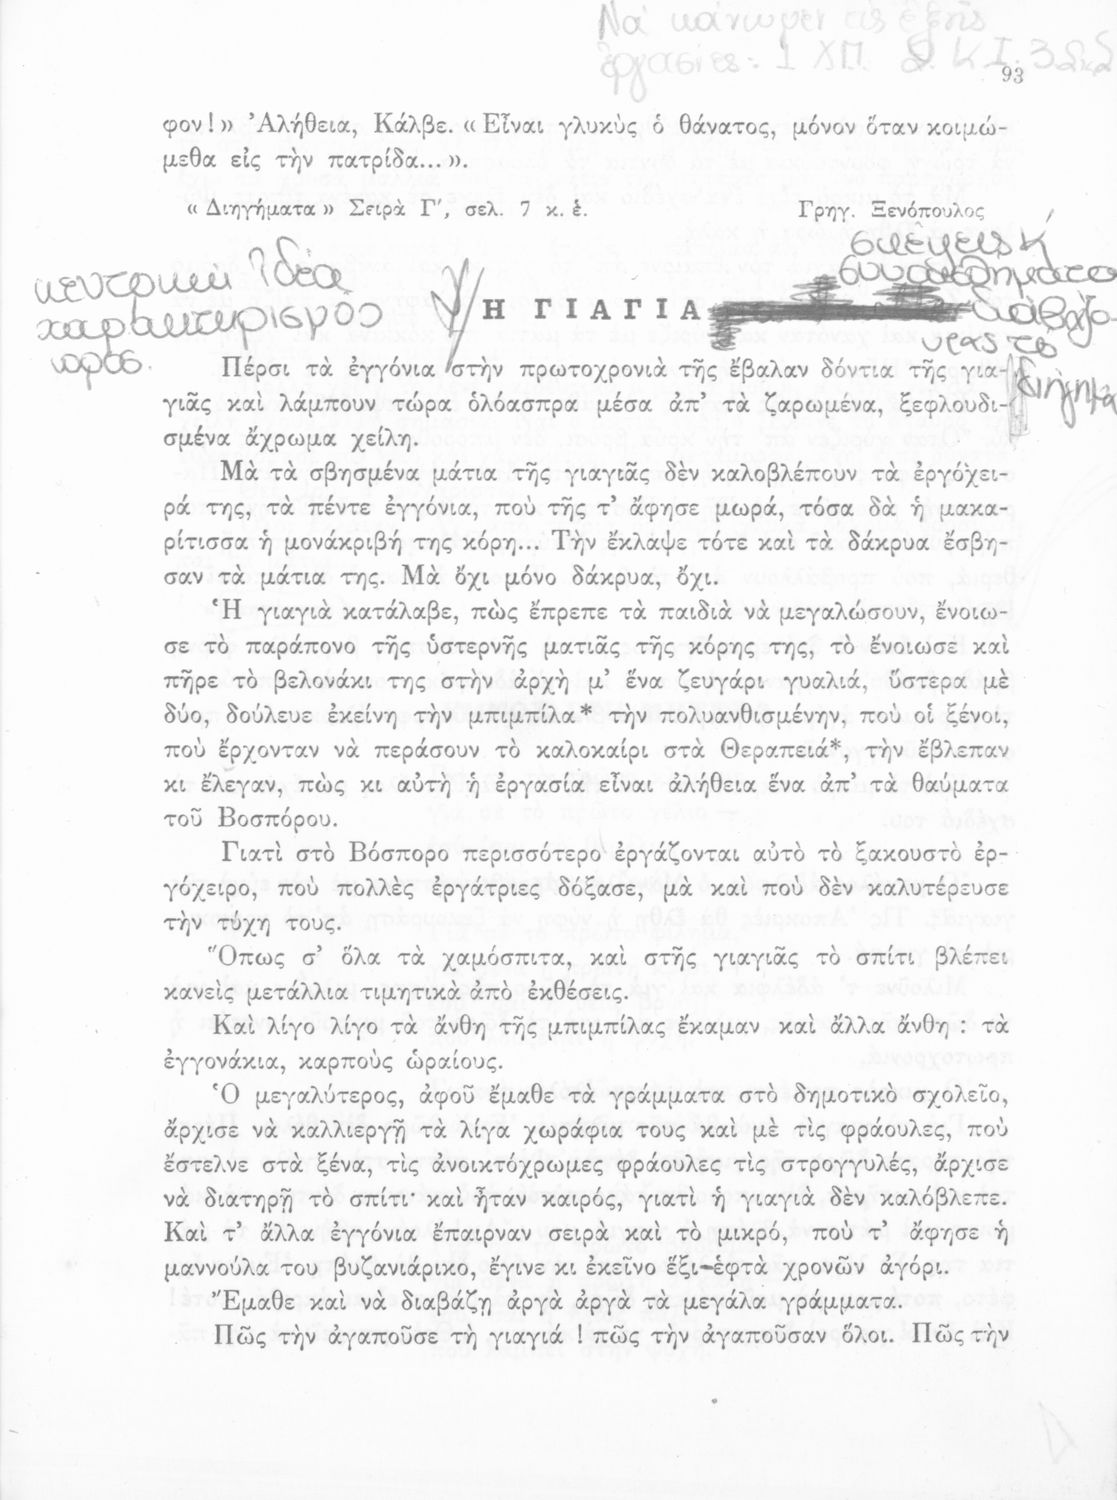 Νά κάνωμεν τίς ἑξῆς
ἐργασίες: 1
93
φον!» Ἀλήθεια, Κάλβε. «Εἶναι γλυκὺς ὁ θάνατος, μόνον ὅταν κοιμώ-
μεθα εἰς τὴν πατρίδα...».
«Διηγήματα» Σειρὰ Γ′, σελ. 7 κ. ἑ. Γρηγ. Ξενόπουλος
σκέψεις κ
συναισθήματα
διαβάζο-
νρας το
διήγημα
κεντρική Ἰδέα
χαρακτηρισμός
Η ΓΙΑΓΙΑ
Πέρσι τὰ ἐγγόνια στὴν πρωτοχρονιὰ τῆς ἔβαλαν δόντια τῆς για-
γιᾶς καὶ λάμπουν τώρα ὁλόασπρα μέσα ἀπ’ τὰ ζαρωμένα, ξεφλουδι-
σμένα ἄχρωμα χείλη.
Μὰ τὰ σβησμένα μάτια τῆς γιαγιᾶς δὲν καλοβλέπουν τὰ ἐργόχει-
ρά της, τὰ πέντε ἐγγόνια, ποὺ τῆς τ’ ἄφησε μωρά, τόσα δὰ ἡ μακα-
ρίτισσα ἡ μονάκριβή της κόρη... Τὴν ἔκλαψε τότε καὶ τὰ δάκρυα ἔσβη-
σαν τὰ μάτια της. Μὰ ὄχι μόνο δάκρυα, ὄχι.
Ἡ γιαγιὰ κατάλαβε, πὼς ἔπρεπε τὰ παιδιὰ νὰ μεγαλώσουν, ἔνοιω-
σε τὸ παράπονο τῆς ὑστερνῆς ματιᾶς τῆς κόρης της, τὸ ἔνοιωσε καὶ
πῆρε τὸ βελονάκι της στὴν ἀρχὴ μ’ ἕνα ζευγάρι γυαλιά, ὕστερα μὲ
δύο, δούλευε ἐκείνη τὴν μπιμπίλα* τὴν πολυανθισμένην, ποὺ οἱ ξένοι,
ποὺ ἔρχονταν νὰ περάσουν τὸ καλοκαίρι στὰ Θεραπειά*, τὴν ἔβλεπαν
κι ἔλεγαν, πὼς κι αὐτὴ ἡ ἐργασία εἶναι ἀλήθεια ἕνα ἀπ’ τὰ θαύματα
τοῦ Βοσπόρου.
Γιατὶ στὸ Βόσπορο περισσότερο ἐργάζονται αὐτὸ τὸ ξακουστὸ ἐρ-
γόχειρο, ποὺ πολλὲς ἐργάτριες δόξασε, μὰ καὶ ποὺ δὲν καλυτέρευσε
τὴν τύχη τους.
Ὅπως σ’ ὅλα τὰ χαμόσπιτα, καὶ στῆς γιαγιᾶς τὸ σπίτι βλέπει
κανεὶς μετάλλια τιμητικὰ ἀπὸ ἐκθέσεις.
Καὶ λίγο λίγο τὰ ἄνθη τῆς μπιμπίλας ἔκαμαν καὶ ἄλλα ἄνθη : τὰ
ἐγγονάκια, καρποὺς ὡραίους.
Ὁ μεγαλύτερος, ἀφοῦ ἔμαθε τὰ γράμματα στὸ δημοτικὸ σχολεῖο,
ἄρχισε νὰ καλλιεργῇ τὰ λίγα χωράφια τους καὶ μὲ τὶς φράουλες, ποὺ
ἔστελνε στὰ ξένα, τὶς ἀνοικτόχρωμες φράουλες τὶς στρογγυλές, ἄρχισε
νὰ διατηρῇ τὸ σπίτι· καὶ ἦταν καιρός, γιατὶ ἡ γιαγιὰ δὲν καλόβλεπε.
Καὶ τ’ ἄλλα ἐγγόνια ἔπαιρναν σειρὰ καὶ τὸ μικρό, ποὺ τ’ ἄφησε ἡ
μαννούλα του βυζανιάρικο, ἔγινε κι ἐκεῖνο ἕξι-ἑφτὰ χρονῶν ἀγόρι.
Ἔμαθε καὶ νὰ διαβάζῃ ἀργὰ ἀργὰ τὰ μεγάλα γράμματα.
Πῶς τὴν ἀγαποῦσε τὴ γιαγιά ! πῶς τὴν ἀγαποῦσαν ὅλοι. Πῶς τὴν